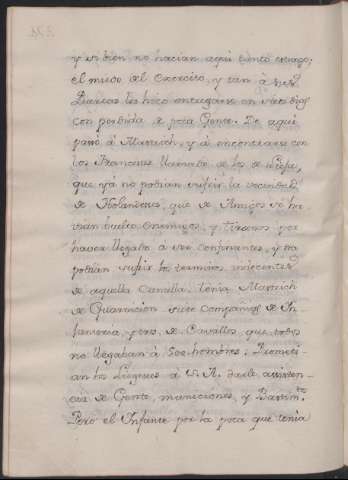 y si bien no hacian aqui tanto estrago;
el miedo del Exercito, y tan à
les hizo entregarse en siete dias
con perdida de poca Gente. De aqui
passò à Mastrich, y à encontrarse con
los Franceses llamado de los de
que yà no podian sufrir la vecindad
de Holandeses, que de Amigos se ha
vian buelto enemigos, y tiranos por
haver llegado a ser confinantes, y no
podian sufrir los terminos indecentes
de aquella Canalla. tenia Mastrich
de Guarnicion siete Compañias de In
fanteria, y tres de Cavallos, que todos
no llegaban à 500 hombres: Prometi
an los à S. A. darle assisten
cia de Gente, municiones, y Bastim.tos
Pero el Infante por la poca que tenia